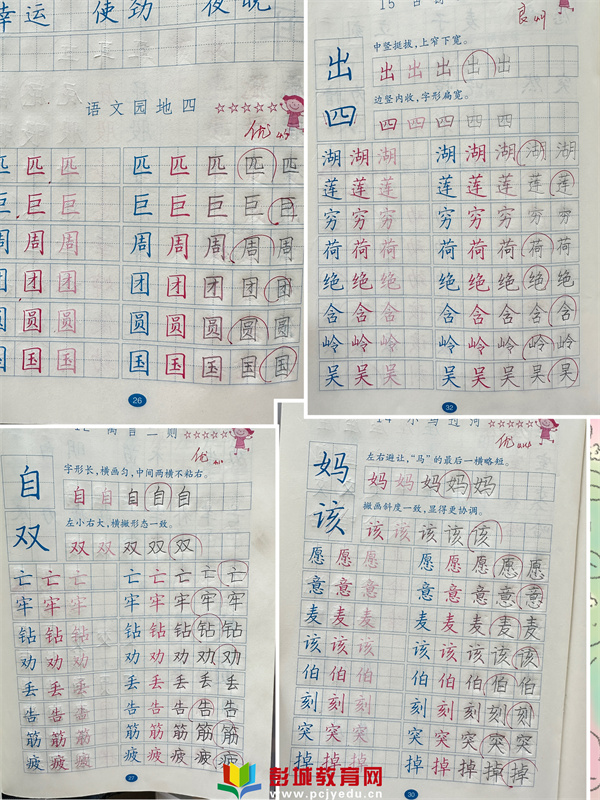 幸运 使劲 夜晚
语文园地四
优
匹匹匹 匹匹匹匹匹
巨巨巨 巨巨巨巨巨
周周周 周周周周周
团团团 团团团团团
圆圆圆 圆圆圆圆圆
国国国 国国国国国
26
15
中竖挺拔，上窄下宽。
出 出出出出出
边竖内收，字形扁宽。
四 四四四四四
湖湖湖 湖湖湖湖湖
莲莲莲 莲莲莲莲莲
穷穷穷 穷穷穷穷穷
荷荷荷 荷荷荷荷荷
绝绝绝 绝绝绝绝绝
含含含 含含含含含
岭岭岭 岭岭岭岭岭
吴吴吴 吴吴吴吴吴
32
12 寓言二则
优
字形长，横画匀，中间两横不粘右。
自 自自自自自
左小右大，横撇形态一致。
双 双双双双双
亡亡亡 亡亡亡亡亡
牢牢牢 牢牢牢牢牢
钻钻钻 钻钻钻钻钻
劝劝劝 劝劝劝劝劝
丢丢丢 丢丢丢丢丢
告告告 告告告告告
筋筋筋 筋筋筋筋筋
疲疲疲 疲疲疲疲疲
27
14 小马过河
优
左右避让，“马”的最后一横略短。
妈 妈妈妈妈妈
撇画斜度一致，显得更协调。
该 该该该该该
愿愿愿 愿愿愿愿愿
意意意 意意意意意
麦麦麦 麦麦麦麦麦
该该该 该该该该该
伯伯伯 伯伯伯伯伯
刻刻刻 刻刻刻刻刻
突突突 突突突突突
掉掉掉 掉掉掉掉掉
30
彭城教育网
www.pcjyedu.cn